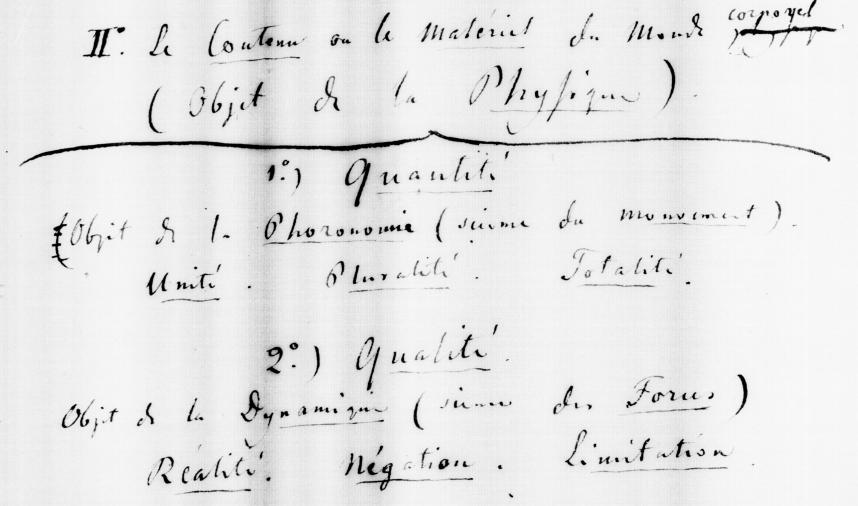 II°. Le Contenu ou le Matériel du Monde corporel
(Objet de la Physique).
1°.) Quantité
Objet de la Phoronomie (science du mouvement).
Unité. Pluralité. Totalité.
2°.) Qualité.
Objet de la Dynamique (science des Forces)
Réalité. Négation. Limitation